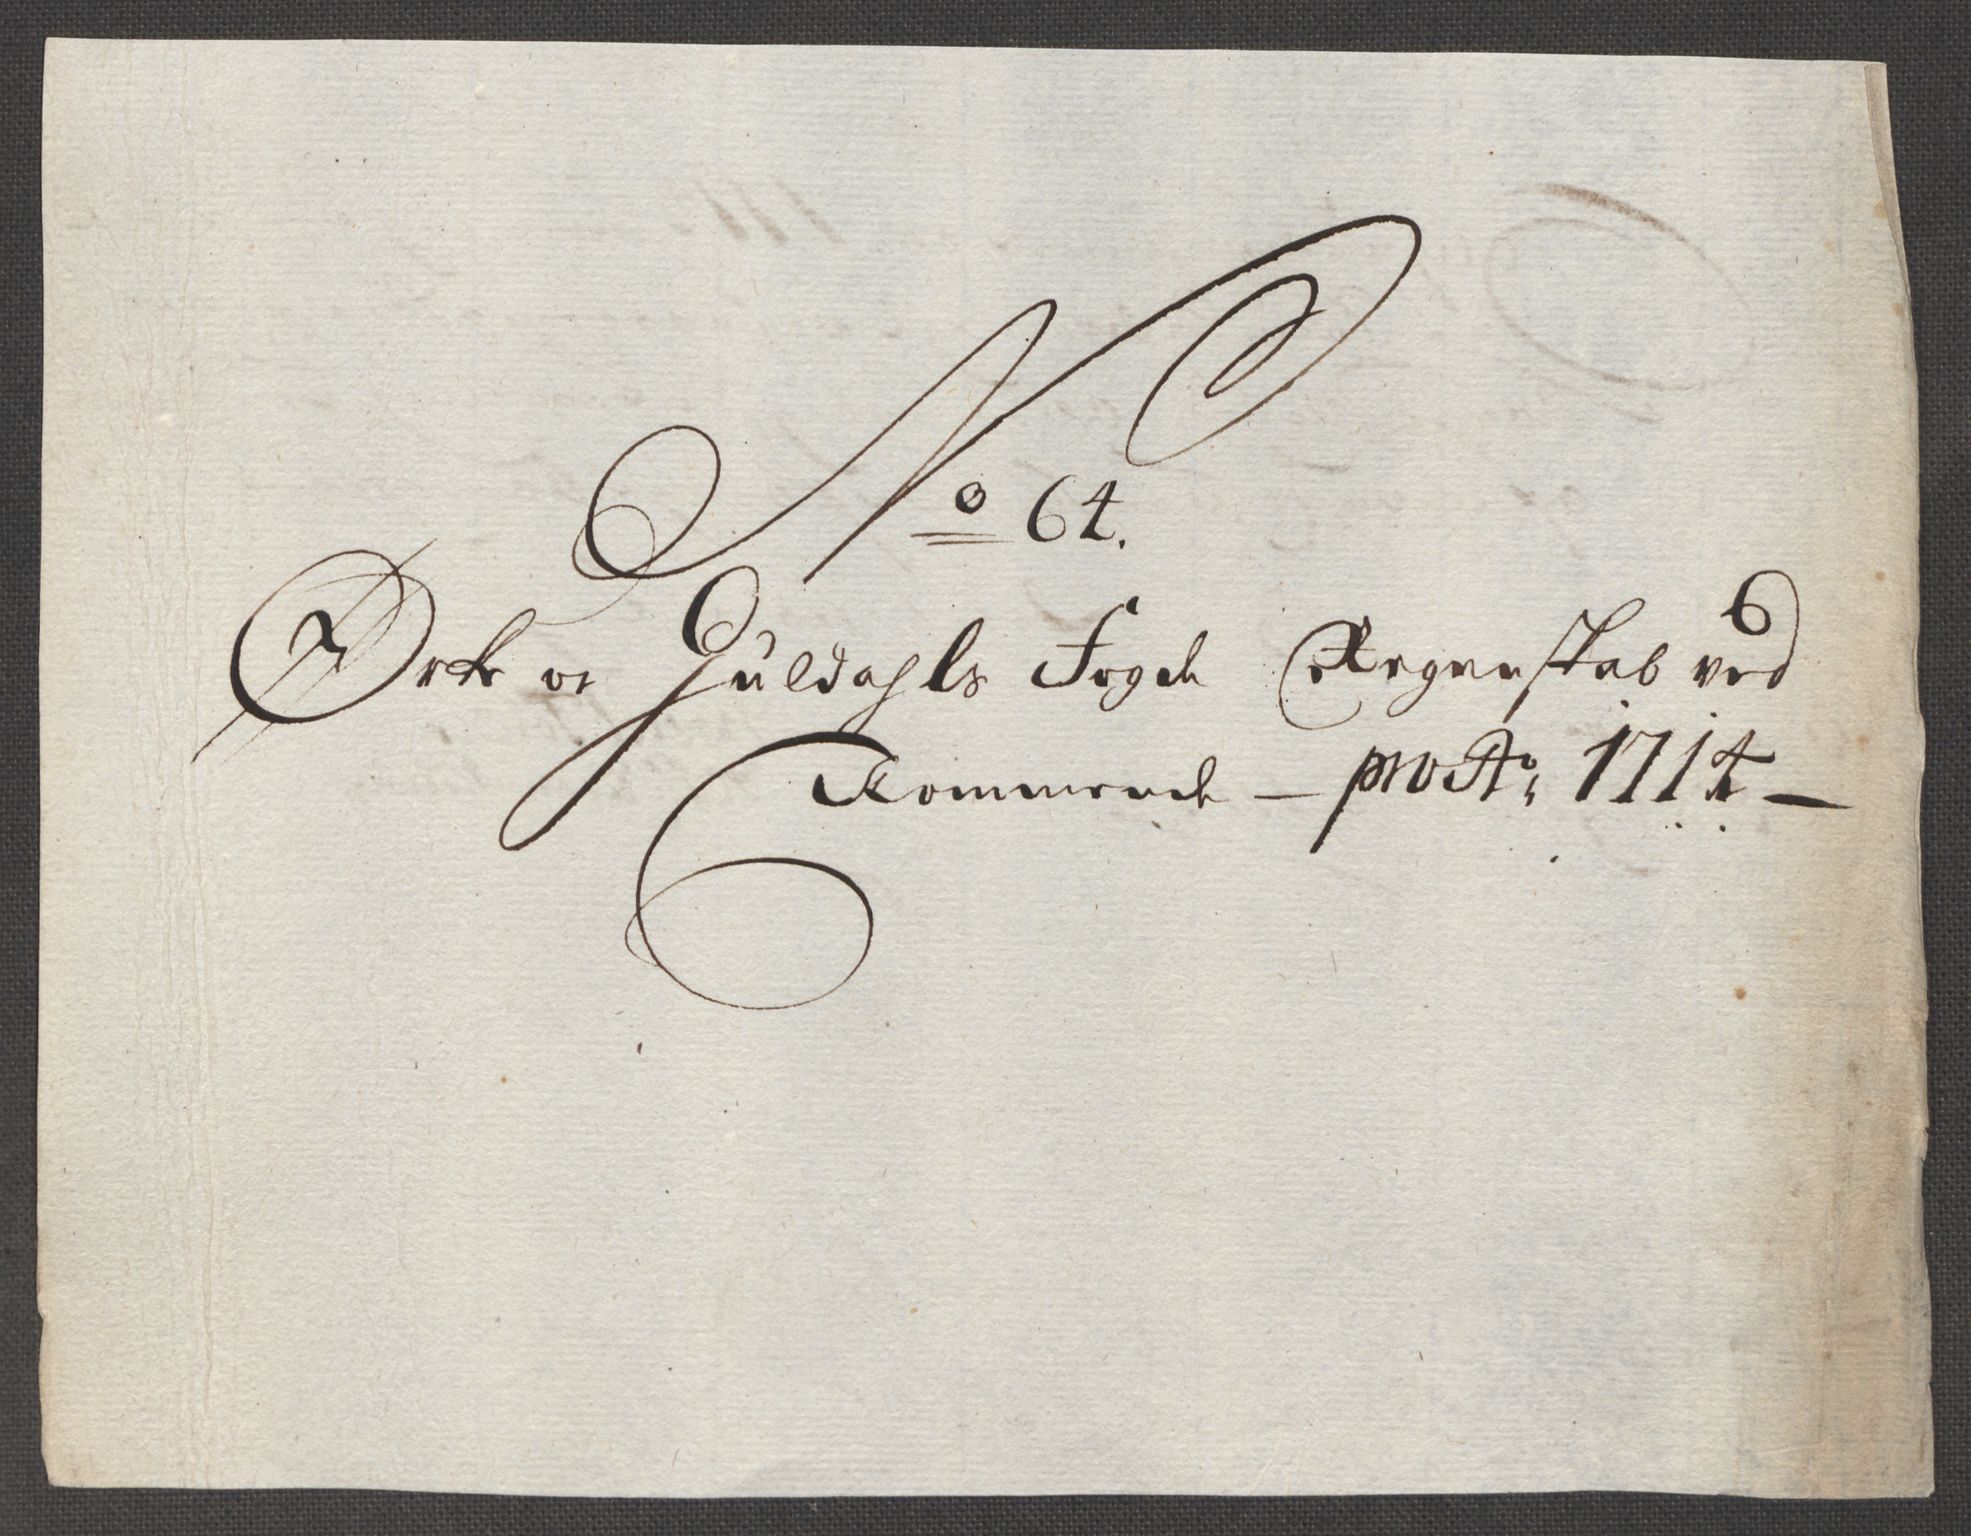 No 64.
Ørke oc Guldahls Fogde Regenskab ved
Kommende – pro Ao 1714 –